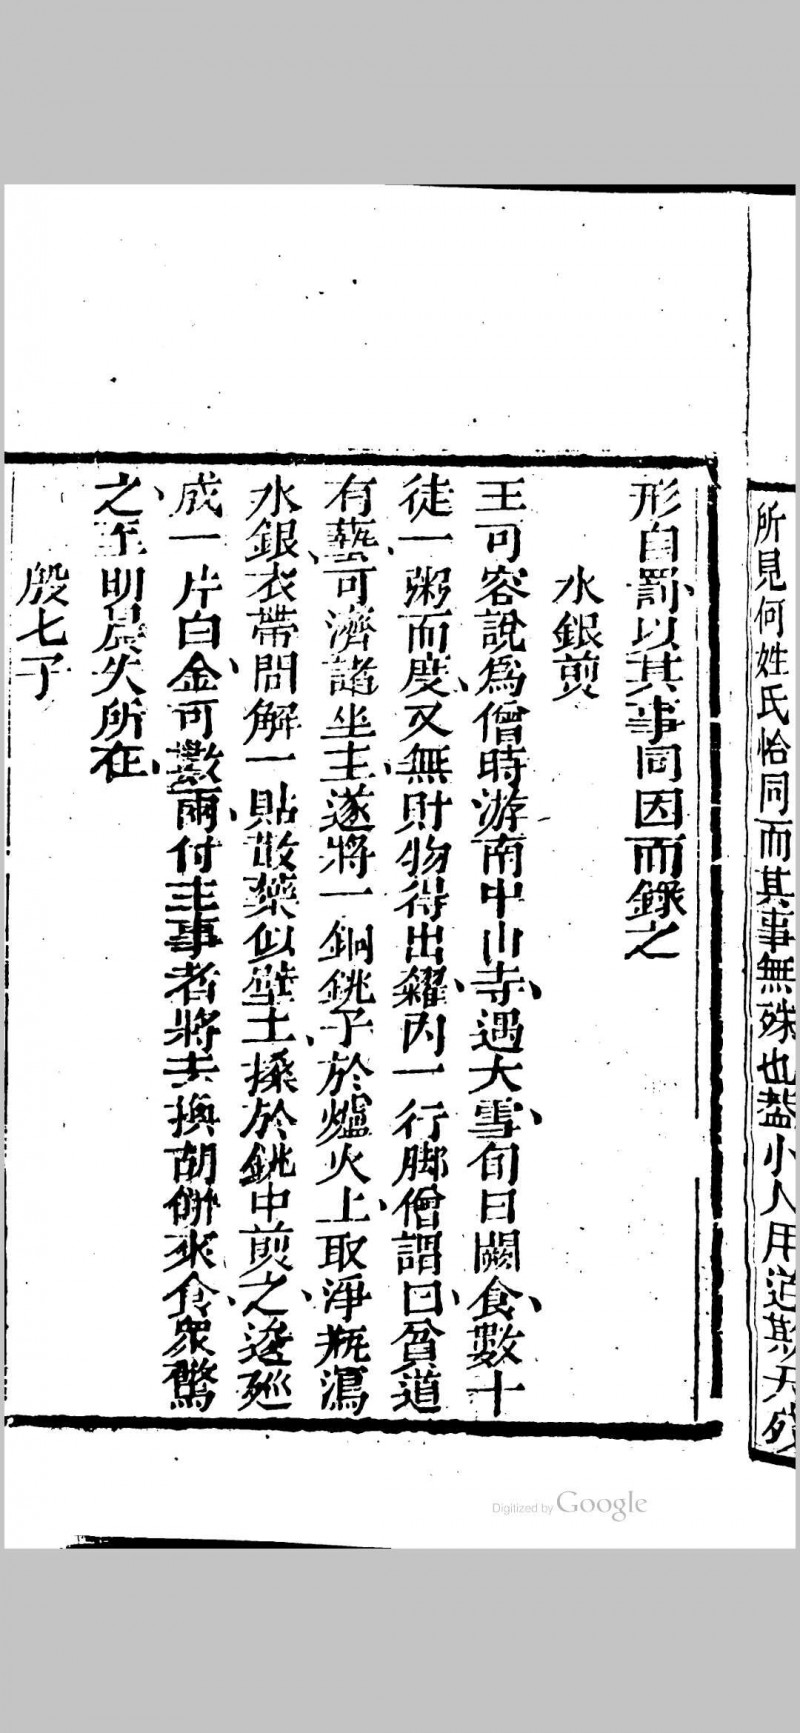 所見何姓氏恰同而其事無殊也葢小人用道欺天殘
形自罰以其事同因而錄之
水銀煎
王可容說爲僧時游南中山寺遇大雪旬日闕食數十
徒一粥而度又無財物得出糴內一行脚僧謂曰貧道
有藝可濟諸坐主遂將一銅銚子於爐火上取淨瓶瀉
水銀衣帶間解一貼散藥似壁土摻於銚中煎之逡廵
成一片白金可數兩付主事者將去換胡餅來食衆驚
之至明晨失所在
殷七子
Digitized by Google